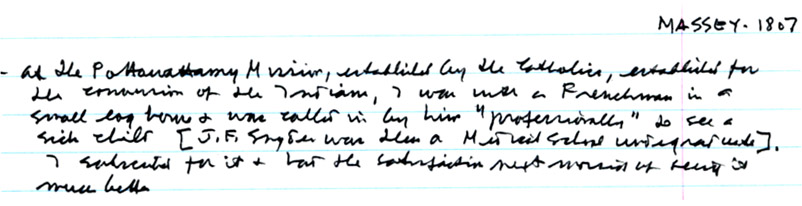 MASSEY - 1807
- At the Pottawattamy Mission, established by the Catholics, established for
the conversion of the Indians, I was with a Frenchman in a
small log house & was called in by him "professionally" to see a
sick child [J.F. Snyder was then a Medical School undergraduate].
I for it & had the satisfaction next morning of seeing it
much better